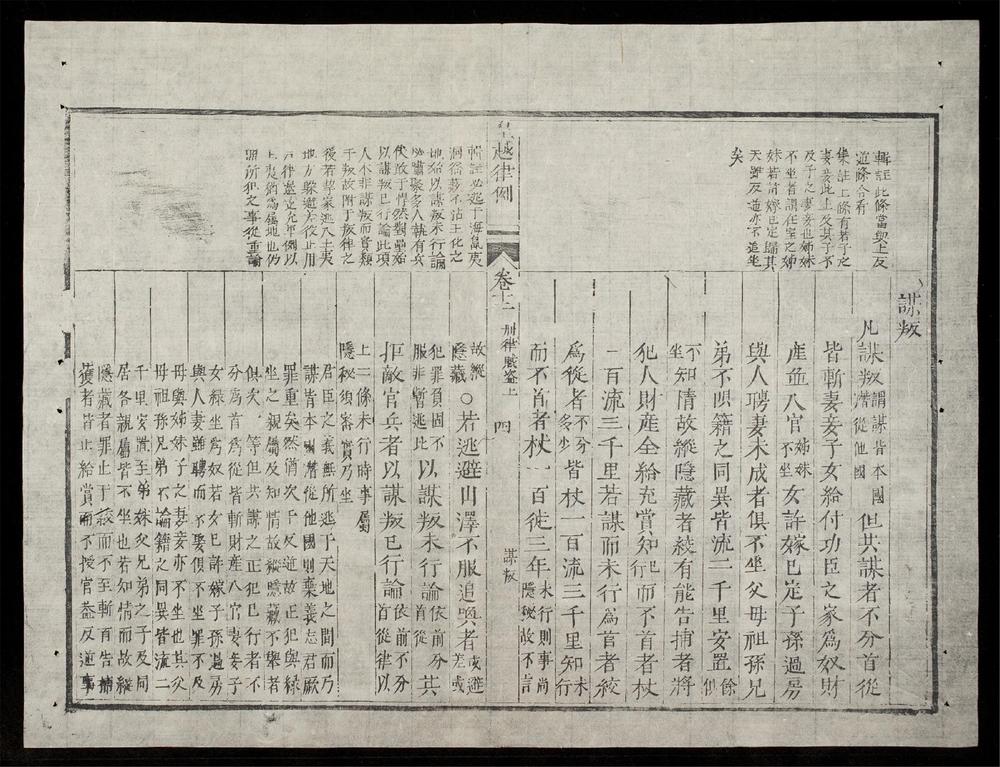 輯註此條當與上反
逆條合看
集註上條有若子之
妻妾此止及其子不
及子之妻妾也姊妹
不坐者謂在室之姊
妹若許嫁已定歸其
夫雖反逆亦不追坐
矣
謀叛
凡謀叛謂謀背本國潛從他國但共謀者不分首從
皆斬妻妾子女給付功臣之家為奴財
產並入官姊妹不坐女許嫁已定子孫過房
與人聘妻未成者俱不坐父母祖孫兄
弟不限籍之同異皆流二千里安置餘俱
不坐知情故縱隱藏者絞有能告捕者將
犯人財產全給充賞知已行而不首者杖
一百流三千里若謀而未行為首者絞
為從者不分多少皆杖一百流三千里知未行
而不首者杖一百徒三年未行則事尚隱秘故不言
皇越律例 卷十二 刑律賊盜上 四 謀叛
輯註必逃于海島夷
洞俗蔽不沾王化之
地始以謀叛未行論
必嘯聚多人執有兵
仗敢于悍然對壘始
以謀叛已行論此項
人本非謀叛而實類
于叛故附于叛律之
後若挈家逃入土夷
地方躲避差役止用
戶律避差充軍例以
土夷猶為屬地也仍
照所犯之事從重論
故縱隱藏○若逃避山澤不服追喚者或避差或
犯罪負固不服非暫逃比以謀叛未行論依前分首從其
拒敵官兵者以謀叛已行論依前不分首從律以
上二條未行時事屬隱秘須審實乃坐
君臣之義無所逃于天地之間而乃
謀背本國潛從他國則棄義忘君厥
罪重矣然猶次于反逆故正犯與緣
坐之親屬及知情故縱隱藏不舉者
俱次一等但共謀之正犯已行者不
分為首為從皆斬財產入官妻妾子
女緣坐為奴若女已許嫁子孫過房
與人妻雖聘而不娶俱不坐罪不及
母與姊妹子之妻妾亦不坐也其父
母祖孫兄弟不論籍之同異皆流二
千里安置至弟姪及兄弟之子及同
居各親屬皆不坐也若知情而故縱
隱藏者罪止于絞而不至斬首告捕
獲者皆止給賞而不授官蓋反逆事